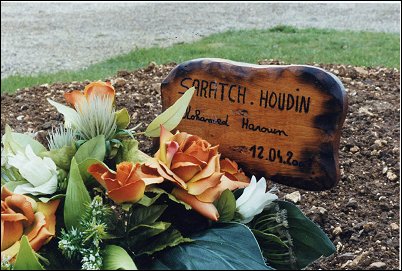 SARATCH. HOUDIN
Mohamed Haroun
12.04.20